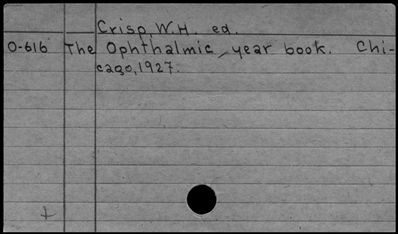 Crisp, W.H. ed.
O-616 The Ophthalmic year book. Chi-
cago, 1927.